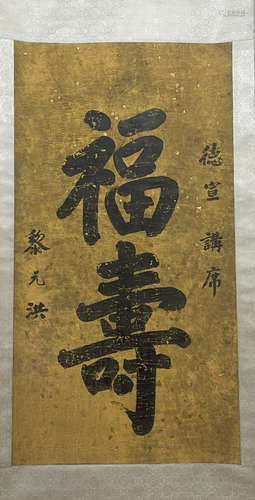 德宣講席
福壽
黎元洪